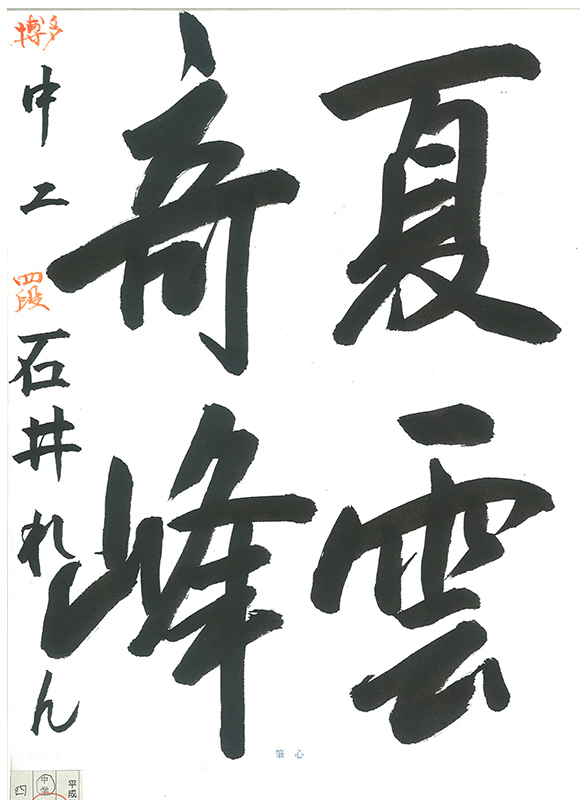 夏雲
奇峰
博多 中二 四段 石井れん
心筆
平成
中学
四